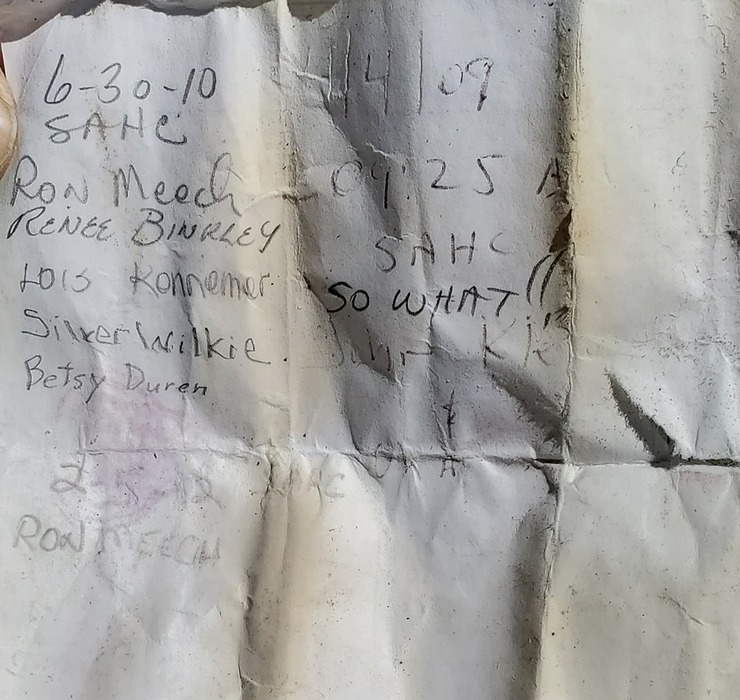 6-30-10
SAHC
Ron Meech
RENEE BINKLEY
LOIS Konnemer
Silver Wilkie
Betsy Duren
2-5-12
RON MEECH
/4/09
09:25 A
SAHC
SO WHAT